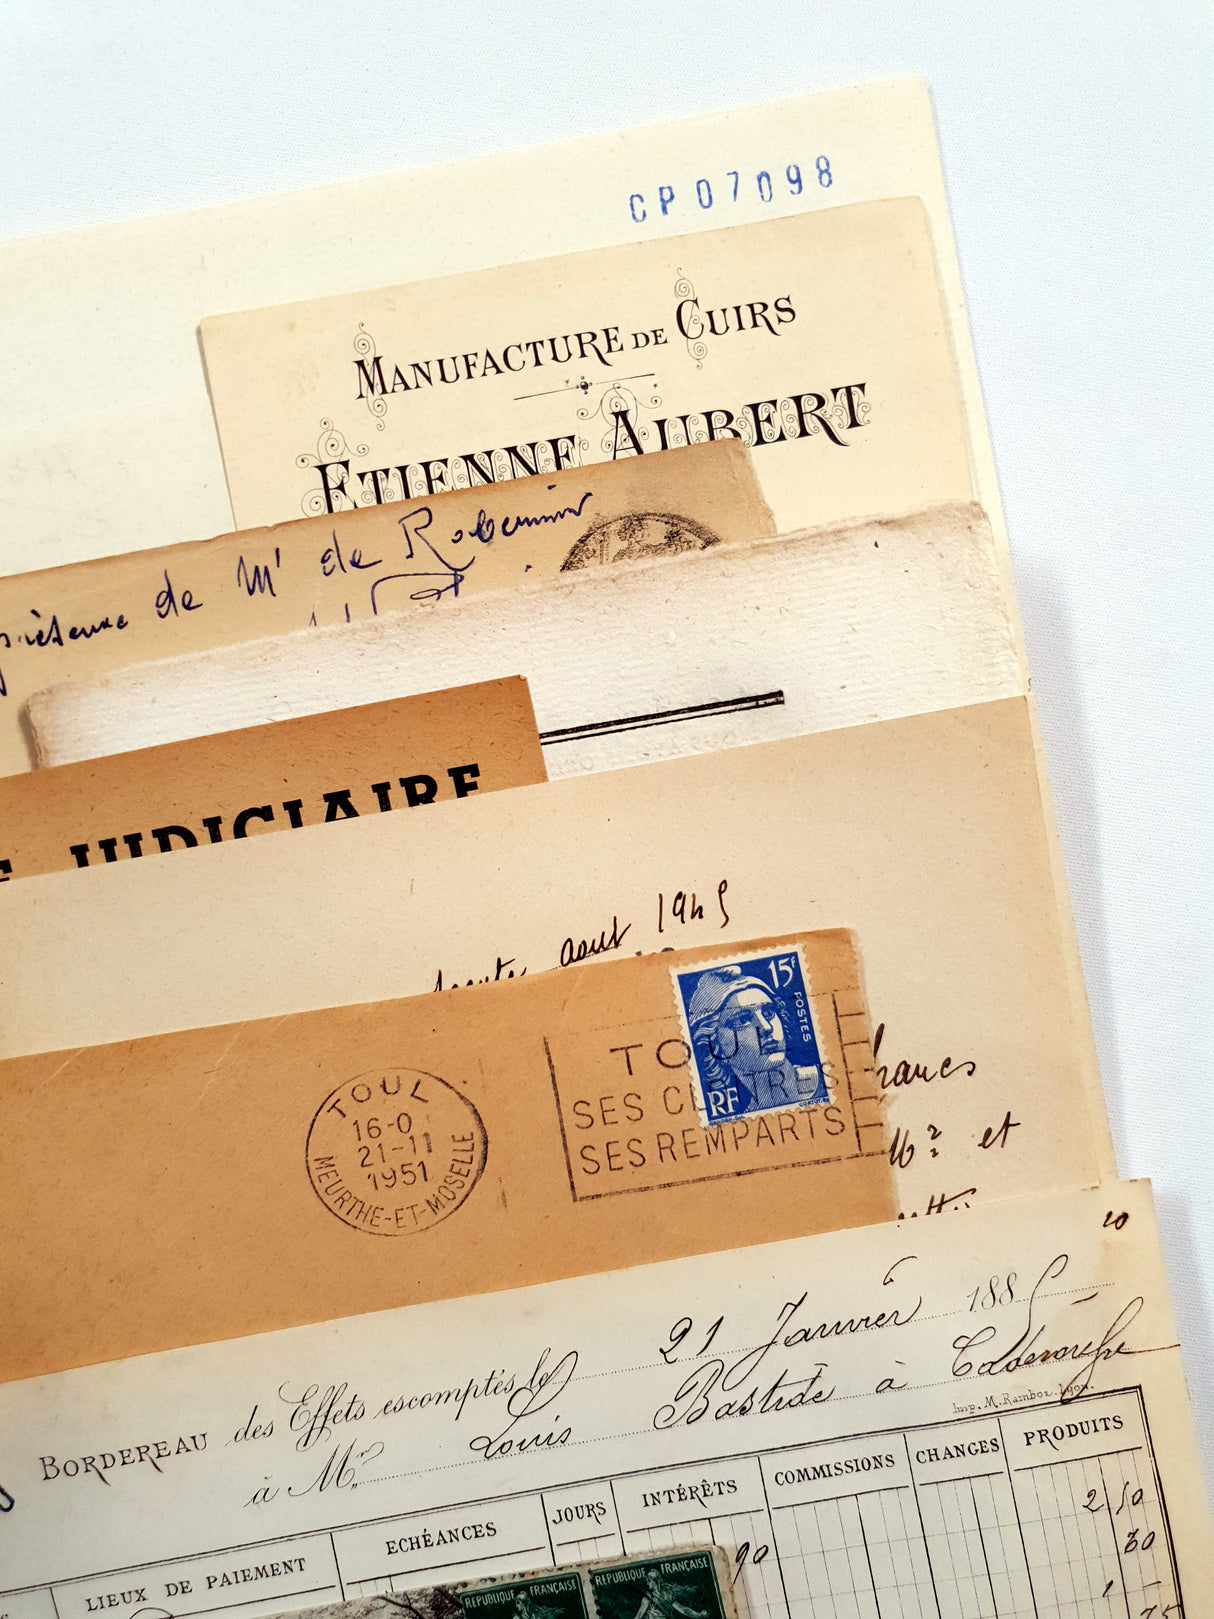 CP07098
MANUFACTURE DE CUIRS
ETIENNE AUBERT
de Mr de
JUDICIAIRE
aout 1945
15f
POSTES
RF
TOUL
16-0
21-11
1951
MEURTHE-ET-MOSELLE
TOUL
SES CENTRES
SES REMPARTS
francs
et
10
BORDEREAU des Effets escomptés le 21 Janvier 1885
à Mr Louis Bastide à Caderousse
Imp. M. Ramboz. Lyon.
LIEUX DE PAIEMENT ECHÉANCES JOURS INTÉRÊTS COMMISSIONS CHANGES PRODUITS
90 2 50
30
75
REPUBLIQUE FRANÇAISE
REPUBLIQUE FRANÇAISE